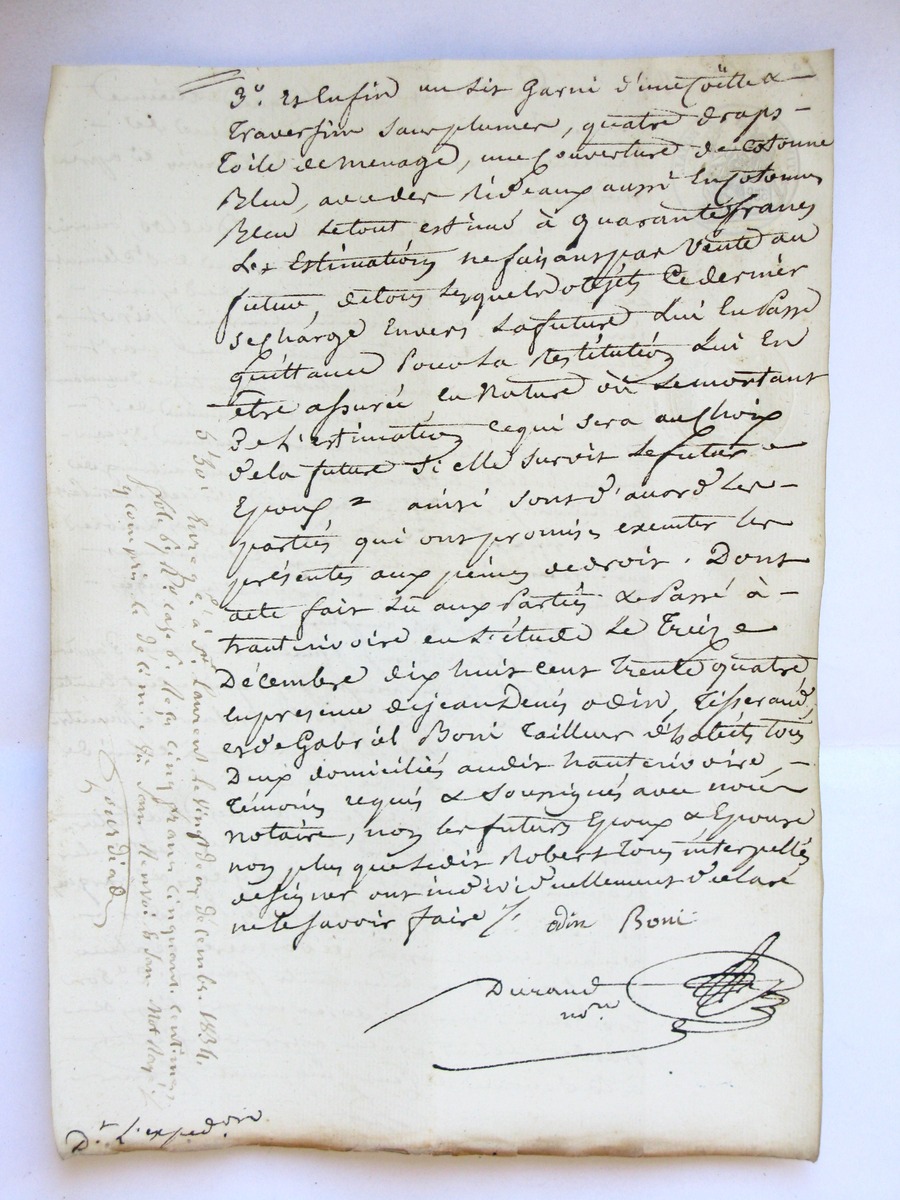 3.° et Enfin un Lit Garni d'une Coëtte &
Traversin sans plumes, quatre draps
toile de menage, une Couverture de Cotonne
Bleu, avec des rideaux aussi En Cotonne
Bleu Le tout estimé à quarante francs
Les Estimations ne faisant pas Vente au
futur, de tous Lesquels objets Ce dernier
se charge Envers La future Lui En Passe
quittance Pour La restitution Lui En
être assurée En Nature où Le montant
De L'estimation ce qui sera au Choix
de la future Si elle survit Le futur
Epoux = ainsi sont d'acord Les
parties qui ont promis executer les
présentes aux peines de droit. Dont
acte fait Lu aux Parties & Passé à
hauterivoire en L'étude Le Treize
Décembre dix huit cent Trente quatre
En presence de jean Denis odin, Tisserand,
et de Gabriel Boni Tailleur d'habits tous
Deux domiciliés audit hauterivoire,
Témoins requis & Soussignés avec nous
notaire, non les futurs Epoux & Epouse
non plus que Ledit Robert tous interpellés
de signer ont individuellement déclaré
ne le savoir faire /.
odin Boni
Durand
no.re
Enreg.é à S.t Laurent le vingt deux décembre 1834.
cinq francs cinquante centimes
y compris le décime
Gourdiad
D.t L'expedon